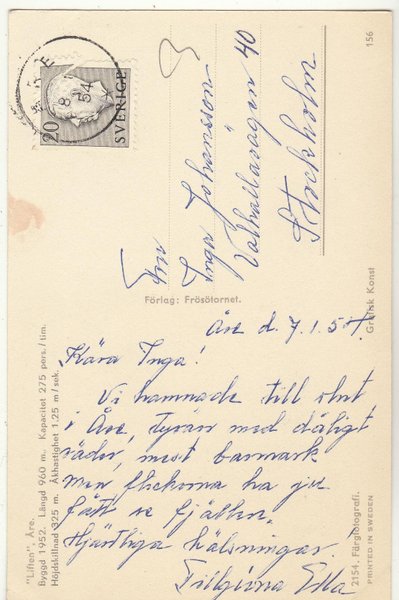 20
SVERIGE
ÅRE
8
54
156
Fru
Inga Johansson
Valhallavägen 40
Stockholm
Förlag: Frösötornet.
Grafisk Konst
Åre d. 7.1.54.
Kära Inga!
Vi hamnade till slut
i Åre, tyvärr med dåligt
väder, mest barmark
men flickorna ha ju
fått se fjällen.
Hjärtliga hälsningar!
Tillgivna Ella
"Liften", Åre.
Byggd 1952. Längd 960 m. Kapacitet 275 pers./tim.
Höjdskillnad 325 m. Åkhastighet 1,25 m/sek.
2154. Färgfotografi.
PRINTED IN SWEDEN